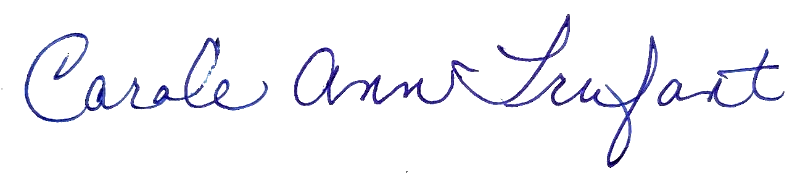 Carole Ann Trufant